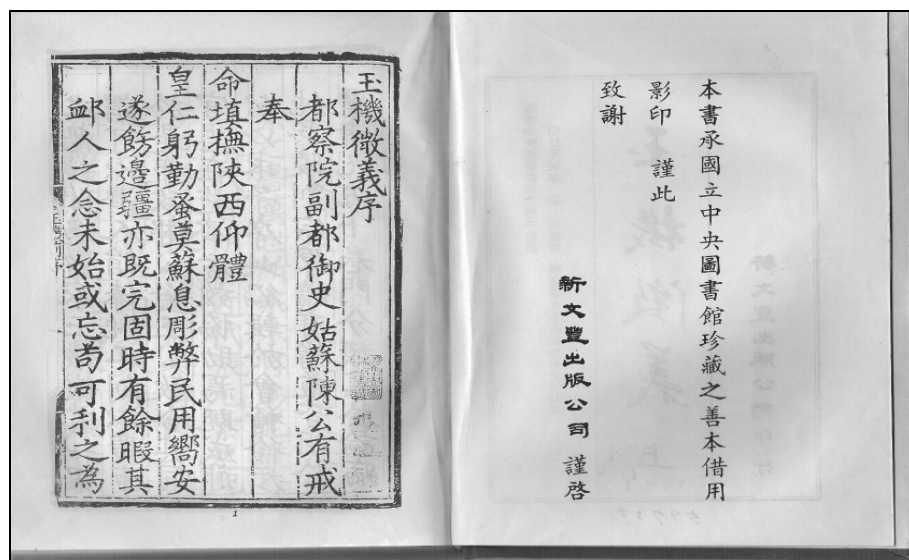 本書承國立中央圖書館珍藏之善本借用
影印 謹此
致謝
新文豐出版公司 謹啓
玉機微義序
都察院副都御史姑蘇陳公有戒
奉
命填撫陝西仰體
皇仁躬勤蚤莫蘇息彫弊民用嚮安
遂飭邊疆亦既完固時有餘暇其
卹人之念未始或忘苟可利之為
1